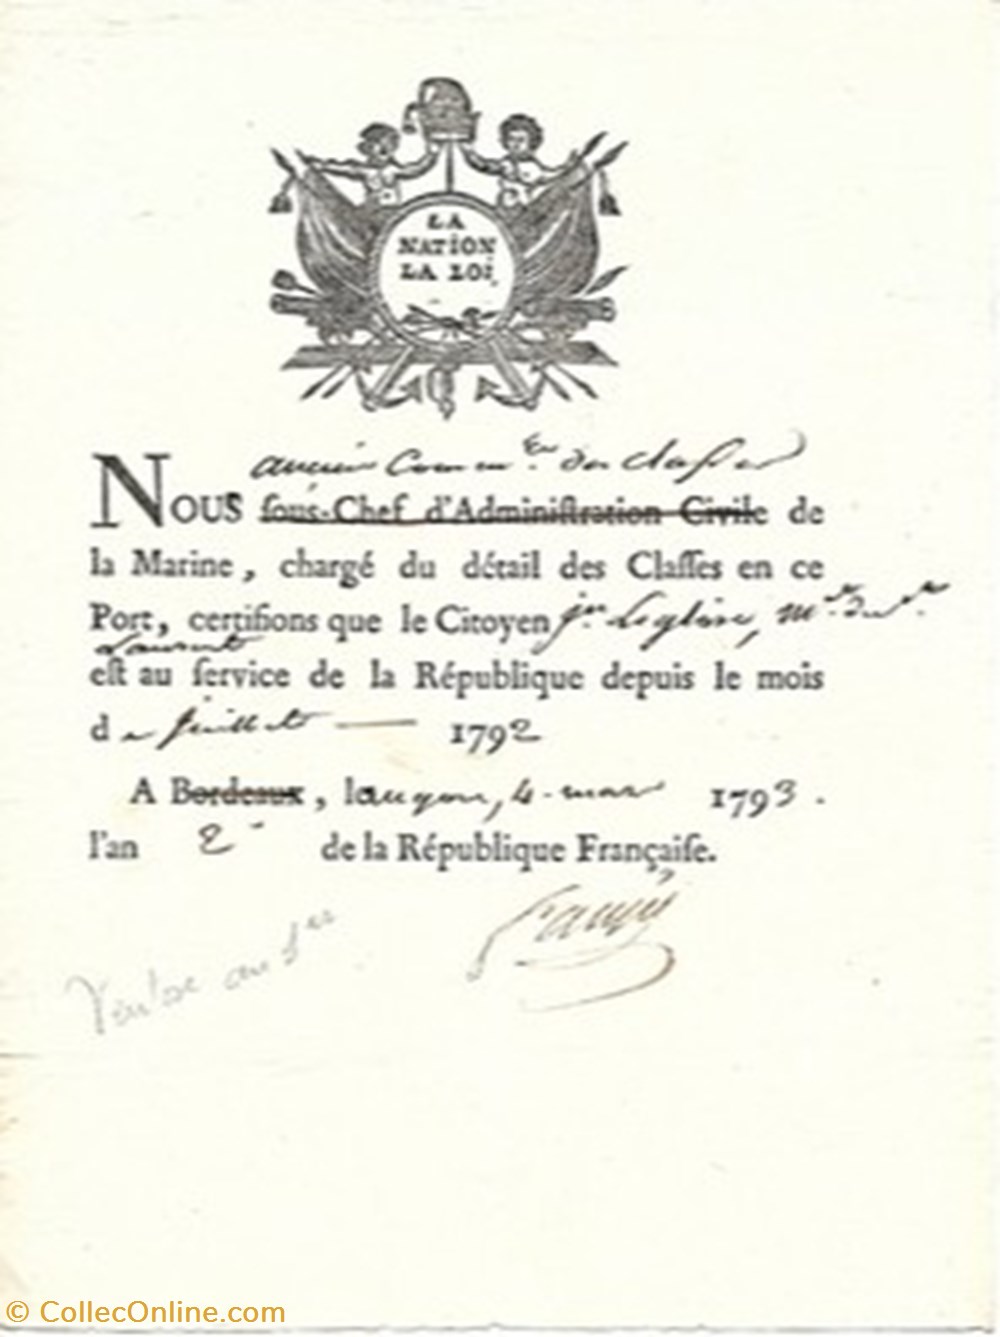 LA
NATION
LA LOI
ancien Comm.re des classes
NOUS ſous-Chef d'Adminiſtration Civile de
la Marine, chargé du détail des Claſſes en ce
Port, certifions que le Citoyen Jn. Leglise,
Laurent
eſt au ſervice de la République depuis le mois
de Juillet — 1792
A Bordeaux, langon, 4. mars 1793.
l'an 2e de la République Françaiſe.
© CollecOnline.com